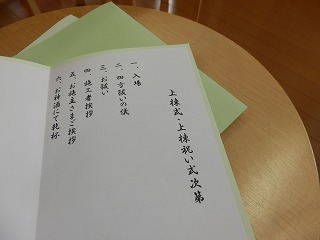 上棟式・上棟祝い式次第
一、入場
二、四方祓いの儀
三、お祓い
四、施工者挨拶
五、お施主さまご挨拶
六、お神酒にて乾杯